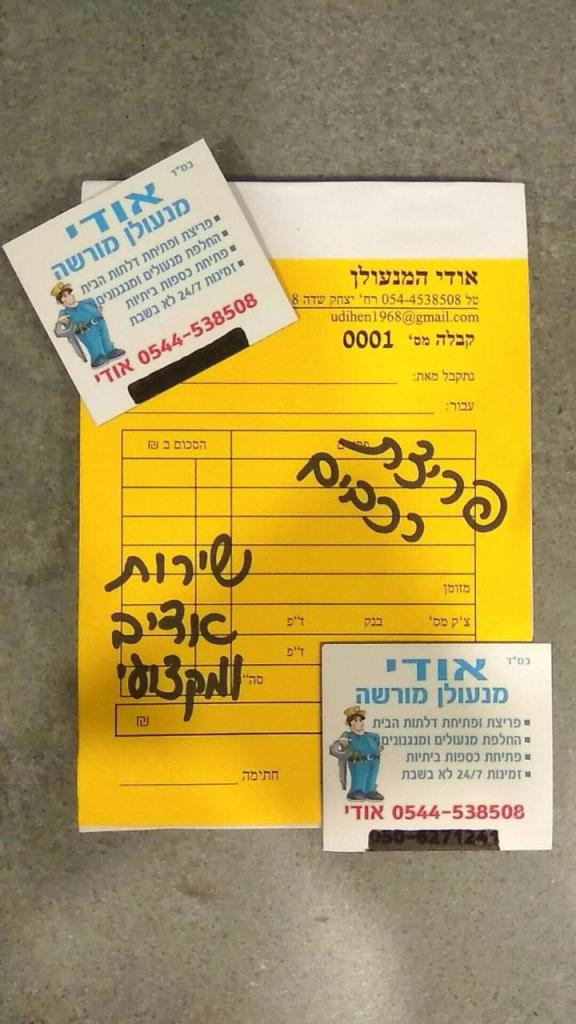 בס"ד
אודי
מנעולן מורשה
▪ פריצת ופתיחת דלתות הבית
▪ החלפת מנעולים ומנגנונים
▪ פתיחת כספות ביתיות
▪ זמינות 24/7 לא בשבת
0544-538508 אודי
אודי המנעולן
טל 054-4538508 רח' יצחק שדה 8
udihen1968@gmail.com
קבלה מס' 0001
נתקבל מאת:
עבור:
הסכום ב ₪
פריצת
רכבים
שירות
אדיב
ומקצועי
מזומן
צ'ק מס' בנק ז"פ
ז"פ
סה"
₪
חתימה
בס"ד
אודי
מנעולן מורשה
▪ פריצת ופתיחת דלתות הבית
▪ החלפת מנעולים ומנגנונים
▪ פתיחת כספות ביתיות
▪ זמינות 24/7 לא בשבת
0544-538508 אודי